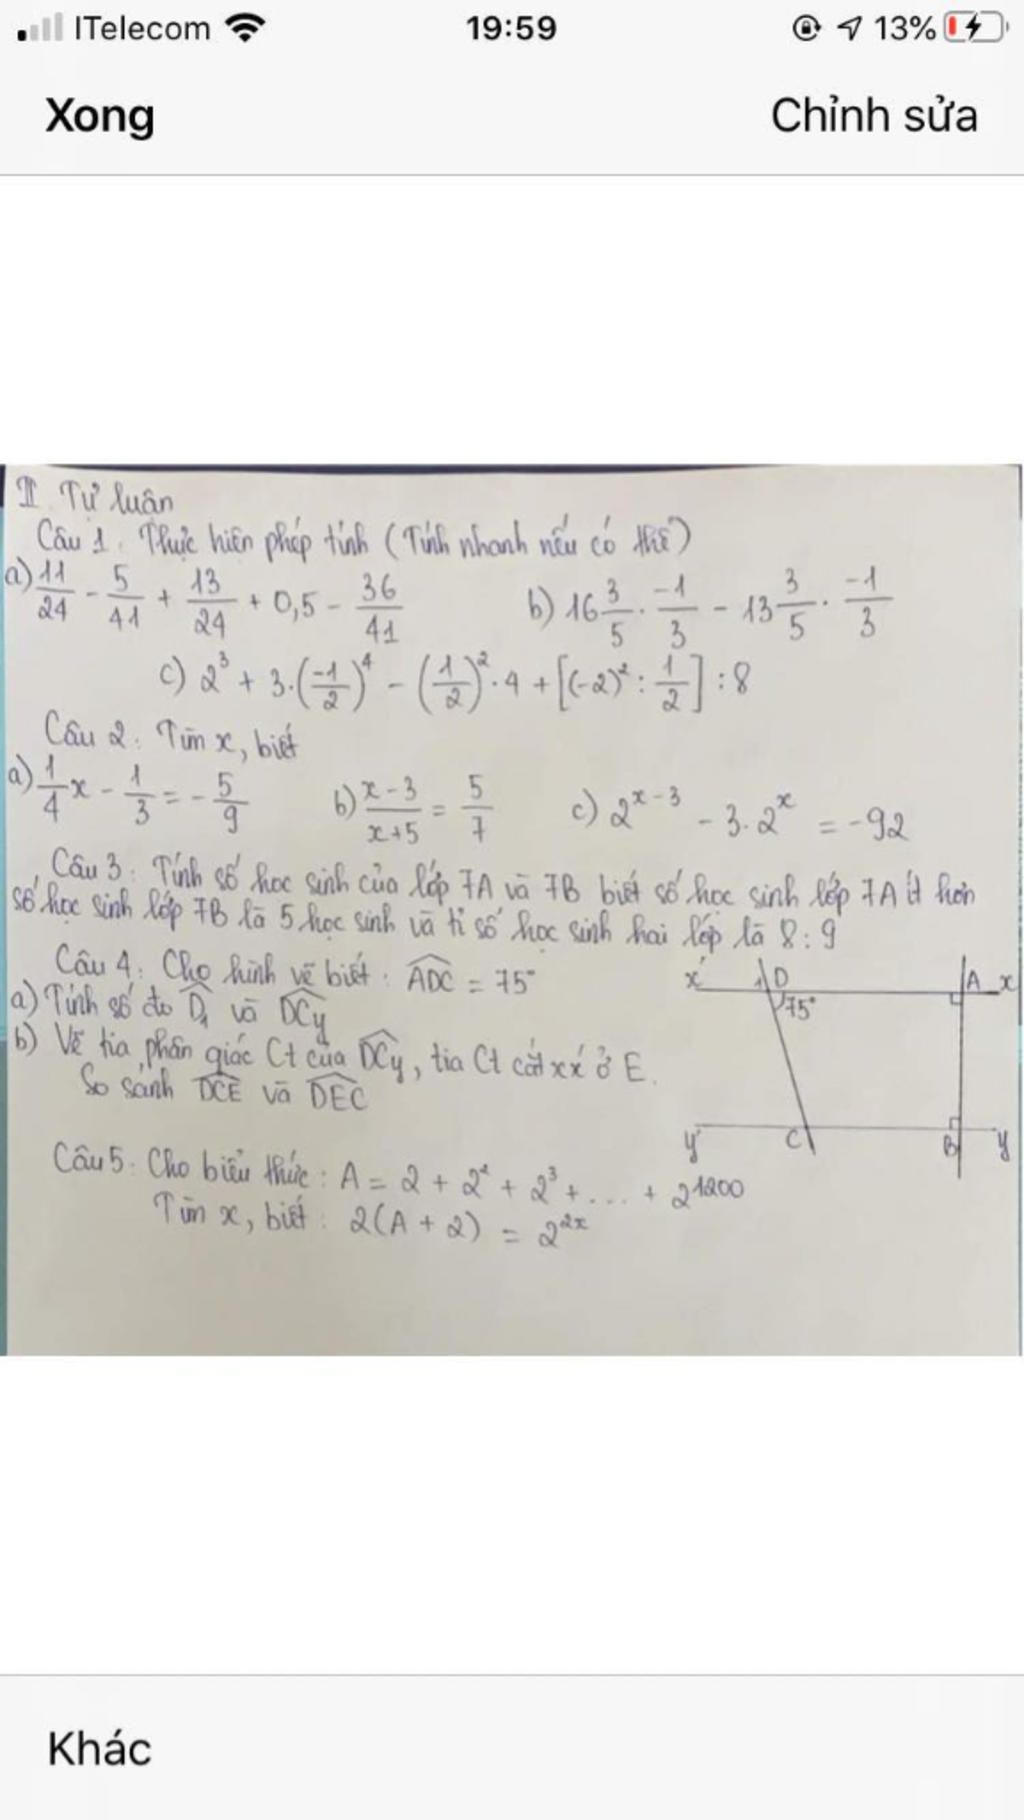 ITelecom 19:59 13%
Xong Chỉnh sửa
II Tự luận
Câu 1. Thực hiện phép tính (Tính nhanh nếu có thể)
a) 11/24 - 5/41 + 13/24 + 0,5 - 36/41 b) 16 3/5 . -1/3 - 13 3/5 . -1/3
c) 2³ + 3.(-1/2)⁴ - (1/2)².4 + [(-2)² : 1/2] : 8
Câu 2. Tìm x, biết
a) 1/4 x - 1/3 = - 5/9 b) x-3/x+5 = 5/7 c) 2^x-3 - 3.2^x = -92
Câu 3: Tính số học sinh của lớp 7A và 7B biết số học sinh lớp 7A ít hơn
số học sinh lớp 7B là 5 học sinh và tỉ số học sinh hai lớp là 8:9
Câu 4: Cho hình vẽ biết: ADC = 75°
a) Tính số đo D₁ và DCy
b) Vẽ tia phân giác Ct của DCy, tia Ct cắt xx' ở E.
So sánh DCE và DEC
x' 1 D A x
75°
y' C B y
Câu 5: Cho biểu thức: A = 2 + 2² + 2³ + ... + 2^1200
Tìm x, biết: 2(A + 2) = 2^2x
Khác